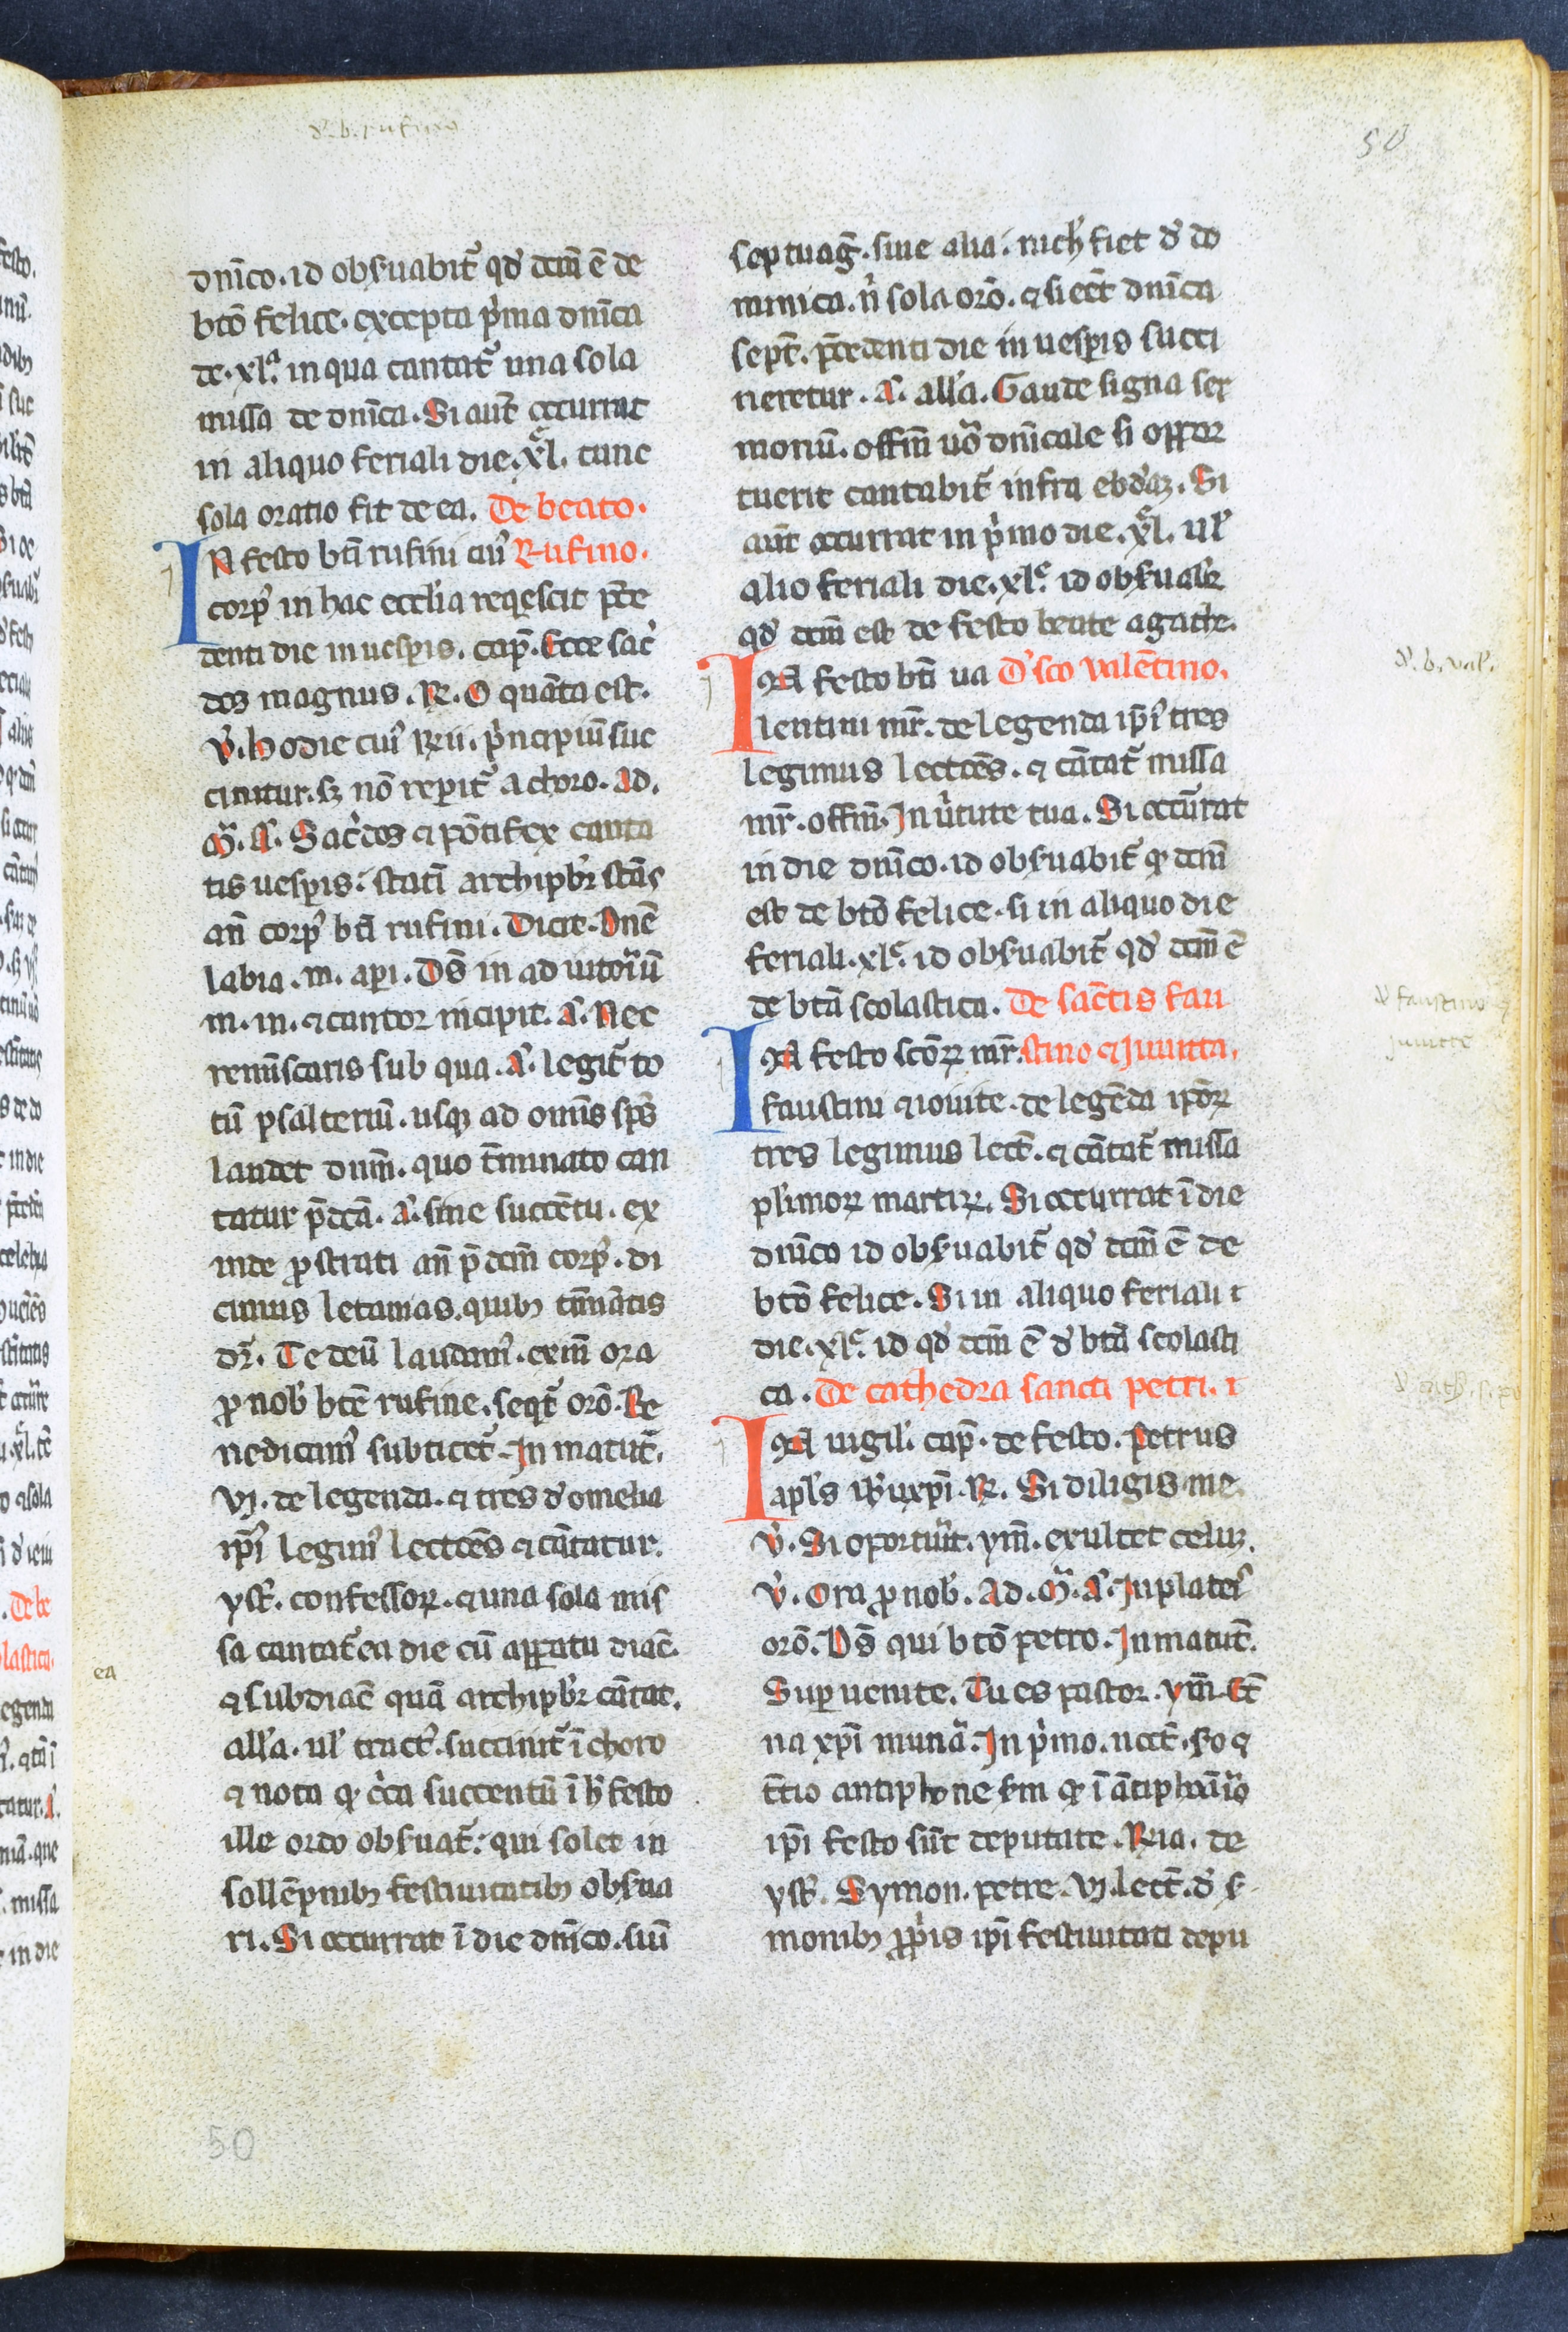 d'. b. rufino
50
dnīco. id obſuabit᷑ qđ dcm̄ ē de
btō felice. excepta p'ma dnīca
de. xlª. in qua cantat᷑ una sola
missa de dnīca. Si aut̄ occurrat
in aliquo feriali die. xl. tunc
sola oratio fit de ea. De beato.
IN festo bti rufini cui' Rufino.
corp' in hac eccl'ia reqescit p̄ce
denti die in uesp̱is. cap̄. Ecce sac'
dos magnus. R. O quāta est.
v̓. Hodie cui' Rii. p'ncipiū suc
cinitur. sꝫ nō rep̱it᷑ a choro. Ad.
M̃. A. Sac'dos ꞇ pōtifex canta
tis uesp̱is. statī archipbr̄ stās
an̄ corp' btī rufini. Dicit. Dnē
labia. m. ap̱i. Ds̄ in adiutoriū
m. in. ꞇ cantor incipit. a. Nec
reminscaris sub qua. A. legit᷑ to
tū psalteriū. usqꝫ ad omīs sps̄
laudet dnm̄. quo t̄minato can
tatur p̄dcā. a. sine succētu. ex
inde ꝓstrati an̄ p̄dcm̄ corp'. di
cimus letanias. quibꝫ t̄minatis
dr̄. Te deū laudam'. exin̄ ora
ꝓ nob' btē rufine. seqt᷑ orō. Be
nedicam' subticet᷑. In matut̄.
vj. de legenda. ꞇ tres d' omelia
ip̄i' legim' lectōes ꞇ cātatur.
yst̄. confessoꝝ. ꞇ una sola mis
sa cantat᷑ ea die cū apparatu diac̄.
ea
ꞇ subdiac̄ quā archipbr̄ cātat.
all'a. ul' tract'. succinit᷑ ī choro
ꞇ nota qꝫ c'ca succentū ī h' festo
ille ordo obſuat᷑. qui solet in
sollēpnibꝫ festiuitatibꝫ obſua
ri. Si occurrat ī die dnīco. siū
septuag̅. siue alia. nich' fiet d' do
minica. n̄ sola orō. ꞇ si eēt dnīca
sept̄. p̄cedenti die in uesp̱is succi
neretur. A. all'a. Gaude signa ser
moniū. offm̄ uō dnīcale si oppor
tuerit cantabit᷑ infra ebd'aꝫ. Si
aūt occurrat in p'mo die. xl. ul'
alio feriali die. xlᵉ. id obſuabr̄
qđ dcm̄ est de festo beate agathe.
d'. b. val'.
IN festo btī ua D' sco valētino.
lentini mr̄. de legenda ip̄i' tres
legimus lectōes. ꞇ cātat᷑ missa
mr̄. offm̄. In u'tute tua. Si occurrat
in die dnīco. id obſuabit᷑ qꝫ dcm̄
est de btō felice. si in aliquo die
feriali. xlᵉ. id obſuabit᷑ qđ dcm̄ ē
d' faustino ꞇ
de btā scolastica. De sāctis fau
jouitte
IN festo scōꝝ mr̄. stino ꞇ Jouitta.
faustini ꞇ iouite. de legēda ip̄oꝝ
tres legimus lect̄. ꞇ cātat᷑ missa
pl'imoꝝ martiꝝ. Si occurrat ī die
dnīco id obſuabit᷑ qđ dcm̄ ē de
btō felice. Si in aliquo feriali ꞇ
die. xlᵉ. id qđ dcm̄ ē d' btā scolasti
d' cath. s. pe
ca. De cathedra sancti petri. ꞇ
IN uigil'. cap̄. de festo. Petrus
apl's ih'u xpī. R. Si diligis me
v̓. Si oportu'it. ym̄. exultet celuꝫ.
v̓. Ora ꝓ nob'. Ad. M̃. A. In plateis
orō. Ds̄ qui btō petro. In matut̄.
Sup̱ uenite. Tu es pastor. ym̄. Et̄
na xpī munā. In p'mo. noct̄. ſo ꞇ
t̄tio antiphone ſm qꝫ ī ātiphoār'o
ip̄i festo sūt deputate. Ria. de
yst̄. Symon. petre. vj. lect̄. d' ſ
monibꝫ ꝓpriis ip̄i festiuitati depu
50